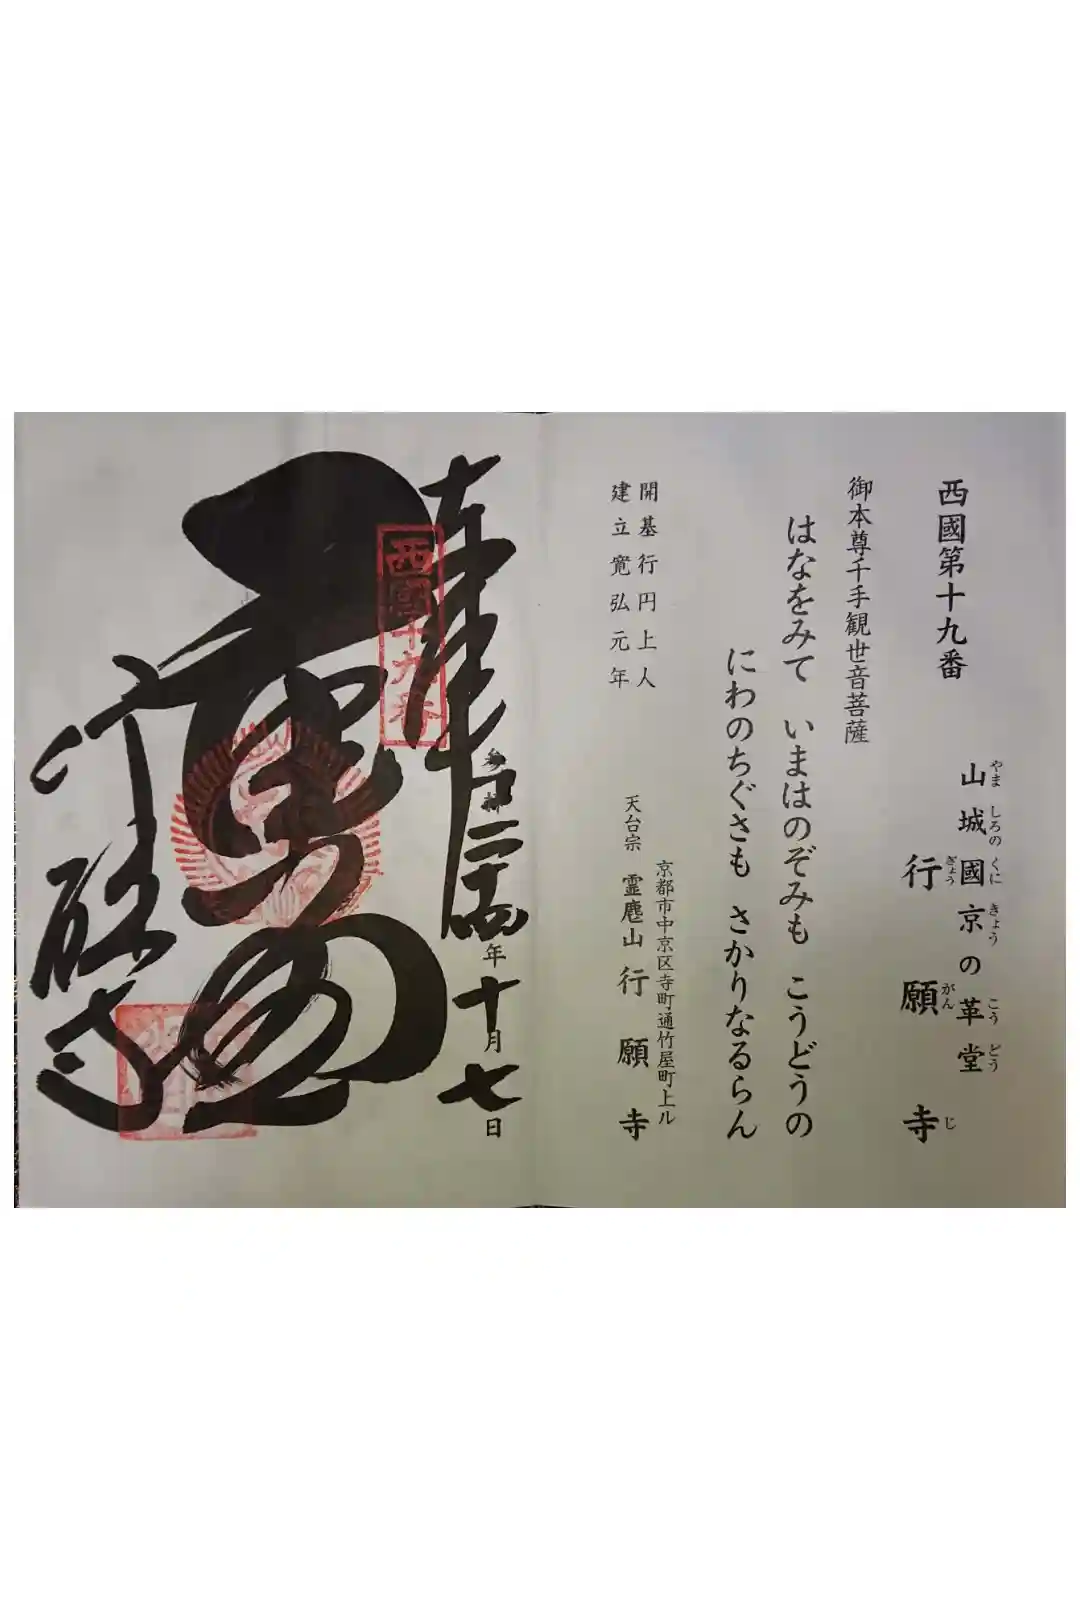 西國第十九番
山城國京の革堂
やましろのくにきょうこうどう
行願寺
ぎょうがんじ
御本尊千手観世音菩薩
はなをみて いまはのぞみも こうどうの
にわのちぐさも さかりなるらん
開基行円上人
建立寛弘元年
京都市中京区寺町通竹屋町上ル
天台宗 霊麀山 行願寺
奉拝
年十月七日
西國十九番
行願寺